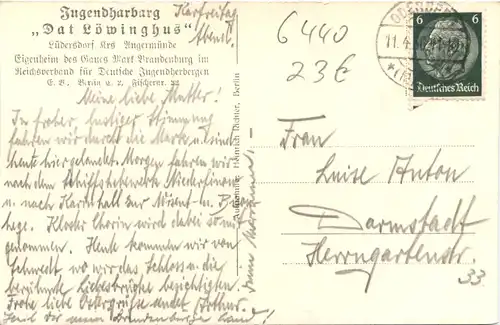 Jugendharbarg
„Dat Löwinghus"
Lüdersdorf Krs Angermünde
Eigenheim des Gaues Mark Brandenburg im
Reichsverband für Deutsche Jugendherbergen
E. V. Berlin
Karfreitag
Abend.
Meine liebe Mutter!
In froher, lustiger Stimmung
fahren wir durch die Mark u. sind
heute hier gelandet. Morgen fahren wir
nach dem Schiffshebewerk Niederfinow
u. nach
Kloster Chorin wird dabei so mit
genommen. Heute kommen wir von
Schwedt, wo wir das Schloss u. die
berühmte besichtigen.
Frohe liebe Ostergrüsse sendet Arthur.
Heinrich Richter, Berlin
6440
23€
11.4.
6
6
Deutsches Reich
Frau
Luise Anton
Darmstadt
Herrngartenstr.
33